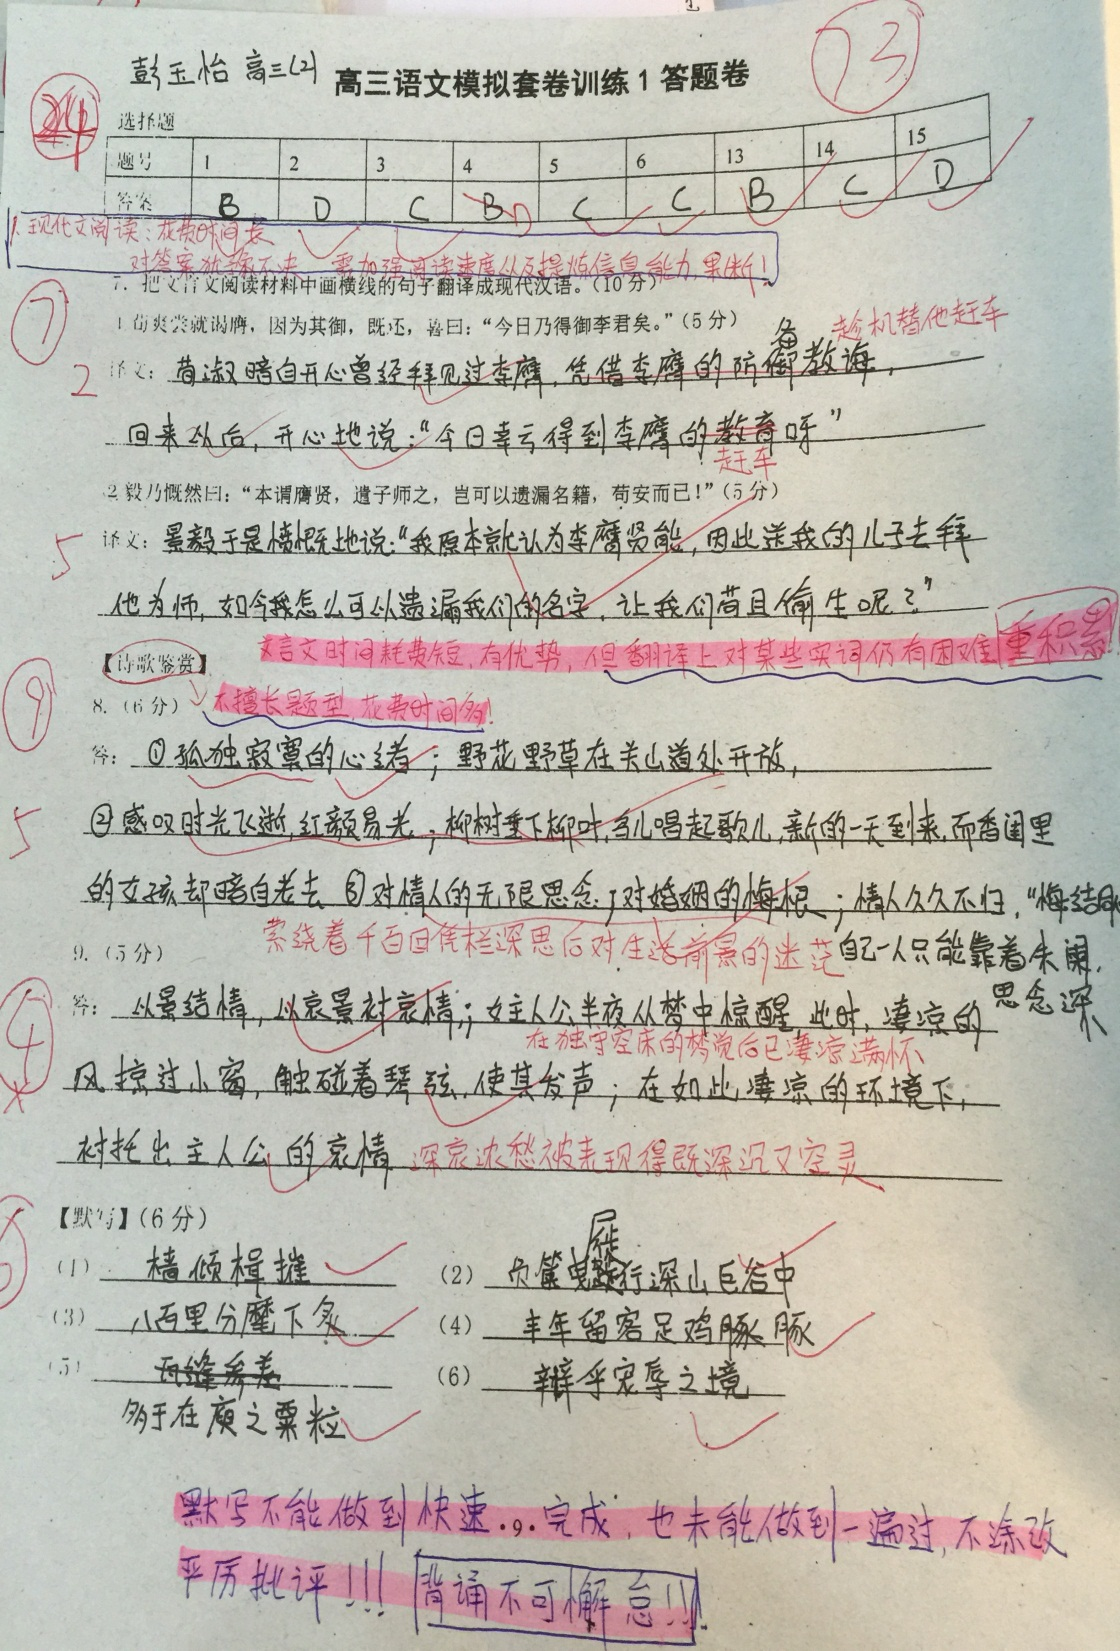 73
彭玉怡 高三(2)
高三语文模拟套卷训练1答题卷
选择题
题号 1 2 3 4 5 6 13 14 15
答案 B D C B D C C B C D
1.现代文阅读:花费时间长
对答案犹豫不决 需加强阅读速度以及提炼信息能力,果断!
7. 把文言文阅读材料中画横线的句子翻译成现代汉语。(10分)
⑦
1 荀爽尝就谒膺,因为其御,既还,喜曰:“今日乃得御李君矣。”(5分)
备 趁机替他赶车
2 译文:荀淑暗自开心曾经拜见过李膺,凭借李膺的防御教诲,
回来以后,开心地说:“今日幸亏得到李膺的教育呀”
赶车
2 毅乃慨然曰:“本谓膺贤,遣子师之,岂可以遗漏名籍,苟安而已!”(5分)
5 译文:景毅于是愤慨地说:“我原本就认为李膺贤能,因此送我的儿子去拜
他为师,如今我怎么可以遗漏我们的名字,让我们苟且偷生呢?”
文言文时间耗费短,有优势,但翻译上对某些实词仍有困难 重积累!
【诗歌鉴赏】
⑨
8.(6分) 不擅长题型,花费时间多!
答:①孤独寂寞的心绪;野花野草在关山道处开放,
5 ②感叹时光飞逝,红颜易老;柳树垂下柳叶,鸟儿唱起歌儿,新的一天到来,而香闺里
的女孩却暗自老去 ③对情人的无限思念,对婚姻的悔恨;情人久久不归,“悔结
萦绕着千百回凭栏深思后对生活前景的迷茫 自己一人只能靠着朱阑,
9.(5分)
思念深
④
答:以景结情,以哀景衬哀情;女主人公半夜从梦中惊醒,此时,凄凉的
在独守空床的梦觉后已凄凉满怀
风掠过小窗,触碰着琴弦,使其发声;在如此凄凉的环境下,
衬托出主人公的哀情 深哀浓愁被表现得既深沉又空灵
【默写】(6分)
(1) 樯倾楫摧 (2) 负箧曳屣行深山巨谷中
(3) 八百里分麾下炙 (4) 丰年留客足鸡豚
(5) 瓦缝参差 (6) 辩乎宠辱之境
多于在庾之粟粒
默写不能做到快速完成,也未能做到一遍过,不涂改
·9·
严厉批评!!! 背诵不可懈怠!!!